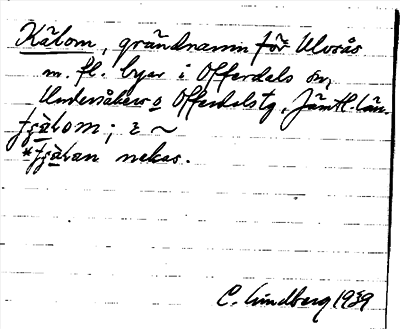 Kälom, grändnamn för Ulvsås
m. fl. byar i Offerdals sn,
Undersåkers o Offerdals tg. Jämtl. län.
; ~
nekas.
C. Lindberg 1939